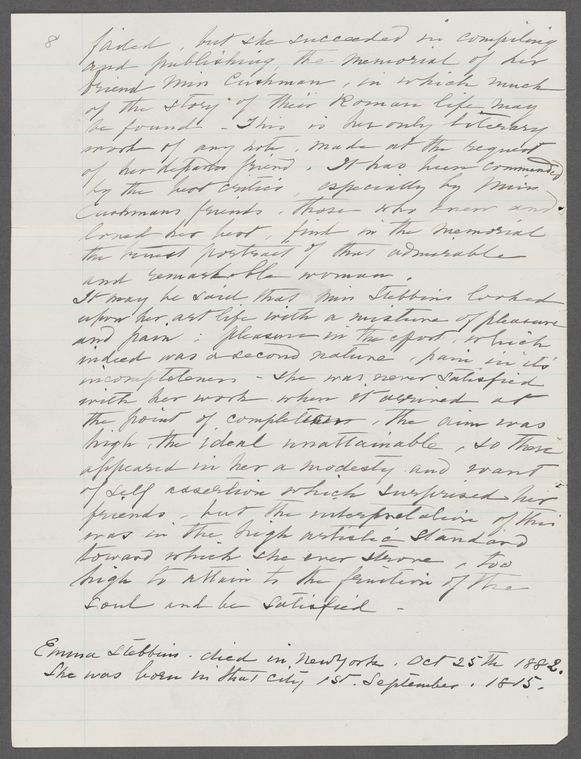 8
failed, but she succeeded in compiling
and publishing the memorial of her
friend Miss Cushman, in which much
of the story of their Roman life may
be found - This is her only literary
work of any note, made at the request
of her departed friend. It has been commended
by the best critics, especially by Miss
Cushmans friends, those who knew and
loved her best, find in the memorial
the truest portrait of that admirable
and remarkable woman.
It may be said, that Miss Stebbins looked
upon her art life with a mixture of pleasure
and pain; pleasure in the effort, which
indeed was a second nature, pain in its
incompleteness - She was never satisfied
with her work when it arrived at
the point of completeness, the aim was
high, the ideal unattainable, so there
appeared in her a modesty and want
of self assertion which surprised her
friends, but the interpretation of this
was in the high artistic standard
toward which she ever strove, too
high to attain to the fruition of the
soul and be satisfied -
Emma Stebbins. died in New York. Oct 25th 1882.
She was born in that city 1st. September. 1815.